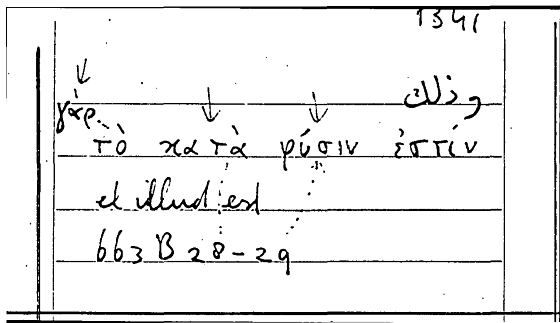 1341
وذلك
γὰρ
τὸ κατὰ φύσιν ἐστίν
et illud est
663 B 28-29